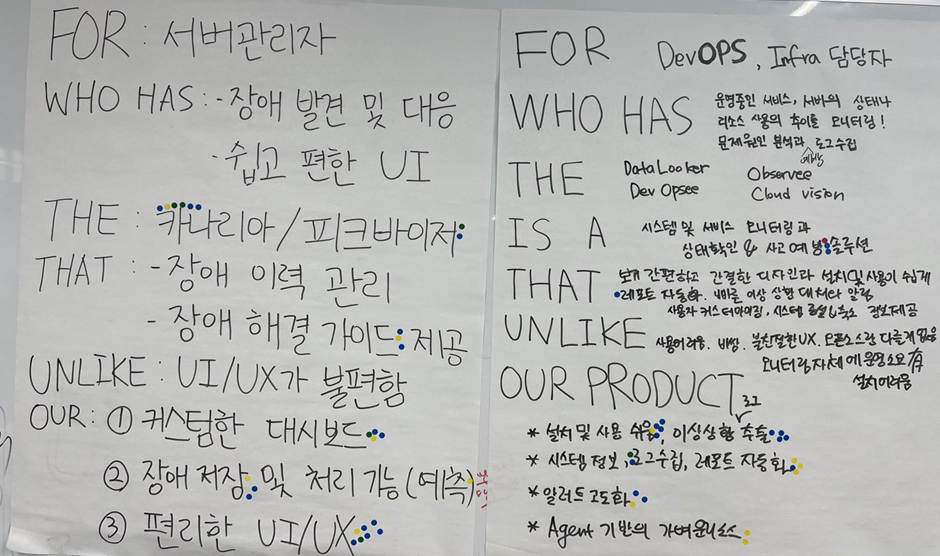 FOR : 서버관리자
WHO HAS : - 장애 발견 및 대응
- 쉽고 편한 UI
THE : 카나리아 / 피크바이저
THAT : - 장애 이력 관리
- 장애 해결 가이드 제공
UNLIKE : UI/UX가 불편함
OUR : ① 커스텀한 대시보드
② 장애 저장 및 처리 가능 (예측)
③ 편리한 UI/UX
FOR DevOPS, Infra 담당자
WHO HAS 운영중인 서비스, 서버의 상태나
리소스 사용의 추이를 모니터링!
문제원인 분석과 로그수집
THE DataLooker Observee
DevOpsee Cloud vision
IS A 시스템 및 서비스 모니터링과
상태확인 & 사고예방 솔루션
THAT 보기 간편하고 간결한 디자인과 설치 및 사용이 쉽게
레포트 자동화. 빠른 이상 상황 대처와 알람
사용자 커스터마이징, 시스템 증설 & 축소 정보제공
UNLIKE 사용어려움. 비쌈. 불친절한 UX. 오픈소스랑 다를게 없음
모니터링 자체에 운영소요 有
설치어려움
OUR PRODUCT
로그
* 설치 및 사용 쉬움, 이상상황 추출
* 시스템 정보, 로그수집, 레포트 자동화
* 알러트 고도화
* Agent 기반의 가벼운 리소스